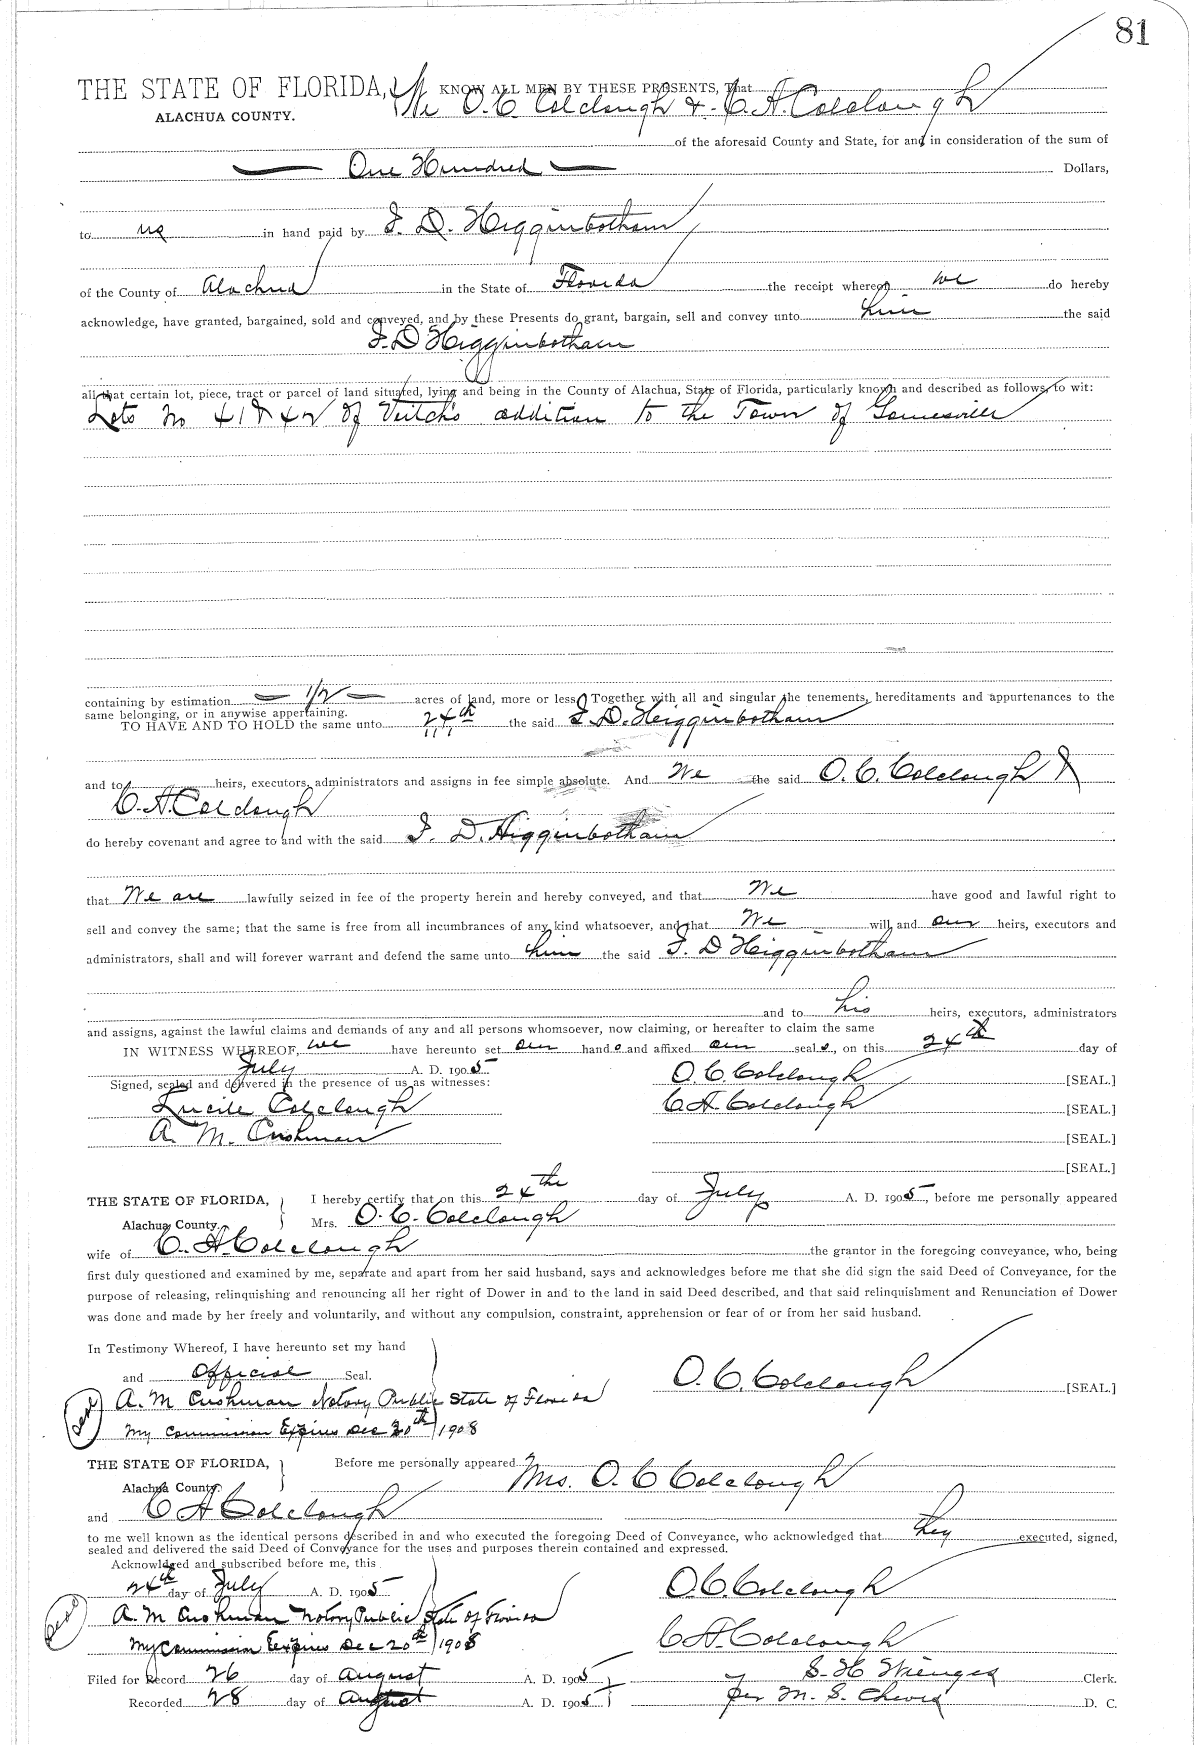 81
THE STATE OF FLORIDA, KNOW ALL MEN BY THESE PRESENTS, That
ALACHUA COUNTY. We O. C. Colclough & C. A. Colclough
of the aforesaid County and State, for and in consideration of the sum of
One Hundred Dollars,
to us in hand paid by I. D. Higginbotham
of the County of Alachua in the State of Florida the receipt whereof we do hereby
acknowledge, have granted, bargained, sold and conveyed, and by these Presents do grant, bargain, sell and convey unto him the said
I. D Higginbotham
all that certain lot, piece, tract or parcel of land situated, lying and being in the County of Alachua, State of Florida, particularly known and described as follows, to wit:
Lots No 41 & 42 of Veitch's addition to the Town of Gainesville
containing by estimation 1/2 acres of land, more or less. Together with all and singular the tenements, hereditaments and appurtenances to the
same belonging, or in anywise appertaining.
TO HAVE AND TO HOLD the same unto 24th the said I. D. Higginbotham
and to heirs, executors, administrators and assigns in fee simple absolute. And We the said O. C. Colclough &
C. A. Colclough
do hereby covenant and agree to and with the said I. D. Higginbotham
that We are lawfully seized in fee of the property herein and hereby conveyed, and that We have good and lawful right to
sell and convey the same; that the same is free from all incumbrances of any kind whatsoever, and that We will and our heirs, executors and
administrators, shall and will forever warrant and defend the same unto him the said I. D Higginbotham
and to his heirs, executors, administrators
and assigns, against the lawful claims and demands of any and all persons whomsoever, now claiming, or hereafter to claim the same
IN WITNESS WHEREOF, we have hereunto set our hands and affixed our seals, on this 24th day of
July A. D. 1905
Signed, sealed and delivered in the presence of us as witnesses: O. C. Colclough [SEAL.]
Lucile Colclough C. A. Colclough [SEAL.]
A. M. Cushman [SEAL.]
[SEAL.]
THE STATE OF FLORIDA, I hereby certify that on this 24th day of July A. D. 1905, before me personally appeared
Alachua County. Mrs. O. C. Colclough
wife of C. A. Colclough the grantor in the foregoing conveyance, who, being
first duly questioned and examined by me, separate and apart from her said husband, says and acknowledges before me that she did sign the said Deed of Conveyance, for the
purpose of releasing, relinquishing and renouncing all her right of Dower in and to the land in said Deed described, and that said relinquishment and Renunciation of Dower
was done and made by her freely and voluntarily, and without any compulsion, constraint, apprehension or fear of or from her said husband.
In Testimony Whereof, I have hereunto set my hand
and Official Seal. O. C. Colclough [SEAL.]
Seal A. M Cushman Notary Public State of Florida
My Commission Expires Dec 20th 1908
THE STATE OF FLORIDA, Before me personally appeared Mrs. O. C Colclough
Alachua County.
and C A Colclough
to me well known as the identical persons described in and who executed the foregoing Deed of Conveyance, who acknowledged that they executed, signed,
sealed and delivered the said Deed of Conveyance for the uses and purposes therein contained and expressed.
Acknowldged and subscribed before me, this
24th day of July A. D. 1905 O. C. Colclough
Seal A. M Cushman Notary Public State of Florida
My Commission Expires Dec 20th 1908 C. A. Colclough
Filed for Record 26 day of August A. D. 1905 S. H. Wienges Clerk.
Recorded 28 day of August A. D. 1905 Per M. S. Cheves D. C.